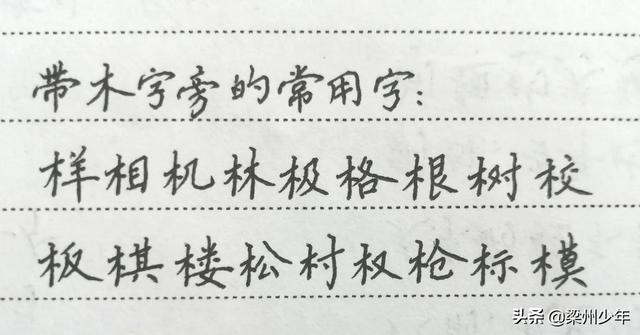 带木字旁的常用字：
样相机林极格根树校
板棋楼松村权枪标模
头条 @梁州少年